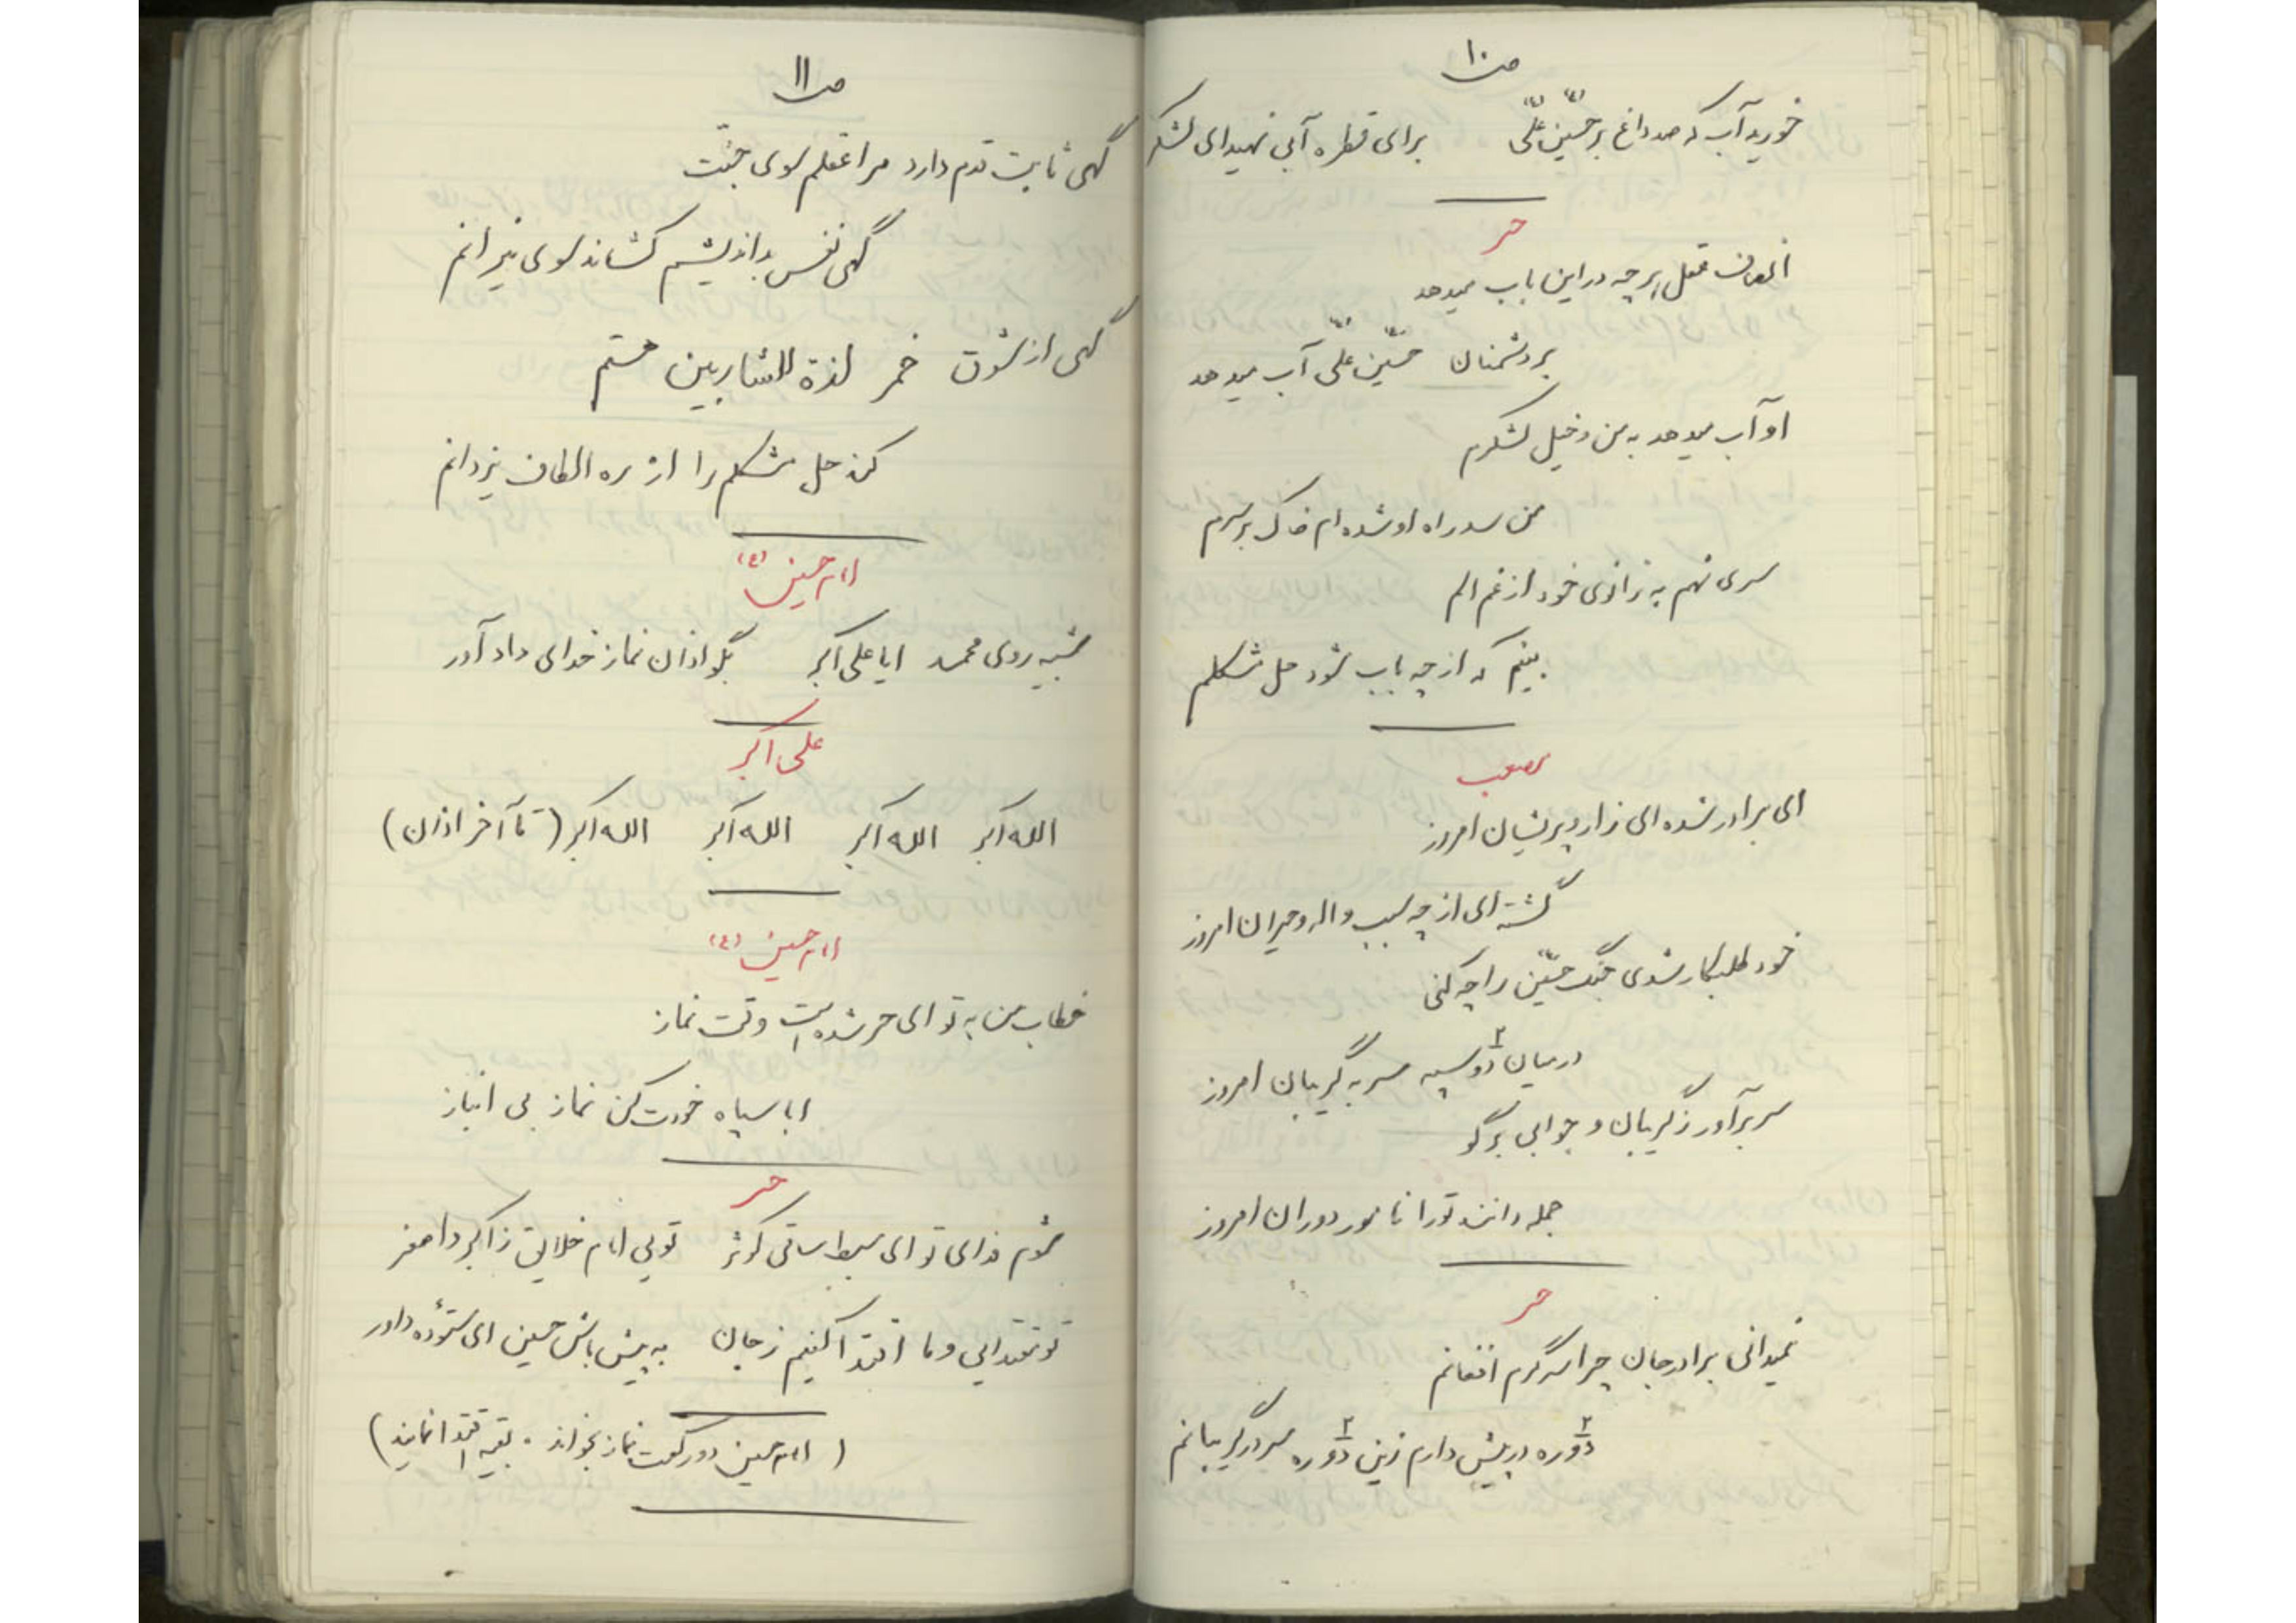 ص ۱۰
خورید آب که صد داغ بر حسین علی برای قطره آبی نهید ای لشکر
حر
انصاف عقل هر چه در این باب میدهد
بر دشمنان حسین علی آب میدهد
او آب میدهد به من و خیل لشکرم
من سد راه او شده ام خاک بر سرم
سری نهم به زانوی خود از غم و الم
بینم که از چه باب شود حل مشکلم
مصعب
ای برادر شده ای زار و پریشان امروز
گشته ای از چه سبب واله و حیران امروز
خود طلبکار شدی جنگ حسین را چه کنی
در میان دو سپه سر به گریبان امروز
سر برآور ز گریبان و جوابی برگو
جمله دانند تو را نامور دوران امروز
حر
نمیدانی برادر جان چرا سرگرم افغانم
دو ره در پیش دارم زین دو ره سر در گریبانم
ص ۱۱
گهی ثابت قدم دارد مرا عقلم سوی جنّت
گهی نفس بد اندیشم کشاند سوی نیرانم
گهی از شوق خمر لذة للشاربین مستم
کند حل مشکلم را از ره الطاف یزدانم
امام حسین (ع)
شبیه روی محمد ایا علی اکبر بگو اذان نماز خدای داد آور
علی اکبر
الله اکبر الله اکبر الله اکبر الله اکبر (تا آخر اذان)
امام حسین (ع)
خطاب من به تو ای حر شده است وقت نماز
ابا سپاه خودت کن نماز بی انباز
حر
شوم فدای تو ای سبط ساقی کوثر تویی امام خلایق ز اکبر و اصغر
تو مقتدایی و ما اقتدا کنیم ز جان به پیش باش حسین ای ستوده داور
(امام حسین دو رکعت نماز بخواند . بقیه اقتدا نمایند)